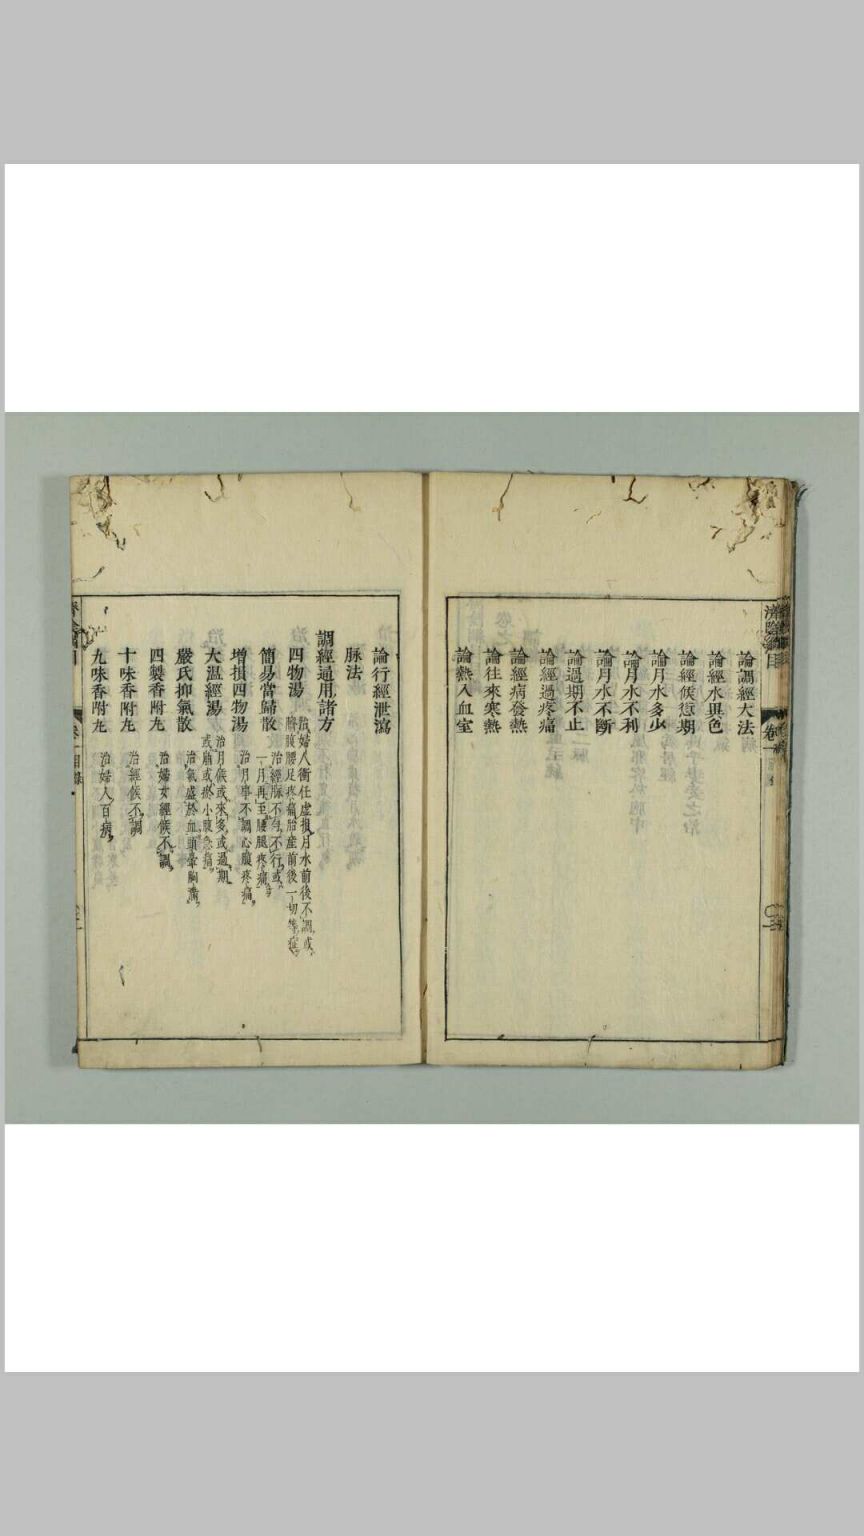 濟陰綱目
卷一
論調經大法
論經水異色
論經候愆期
論月水多少
論月水不利
論月水不斷
論過期不止
論經過疼痛
論經病發熱
論往來寒熱
論熱入血室
論行經泄瀉
脉法
調經通用諸方
四物湯
治婦人衝任虛損月水前後不調或
臍腹腰足疼痛胎產前後一切等症
簡易當歸散
治經脉不勻不行或
一月再至腰腿疼痛
增損四物湯
治月事不調心腹疼痛
大溫經湯
治月候或來多或過期
或崩或瘀小腹急痛
嚴氏抑氣散
治氣盛於血頭暈胸滿
四製香附丸
治婦女經候不調
十味香附丸
治經候不調
九味香附丸
治婦人百病